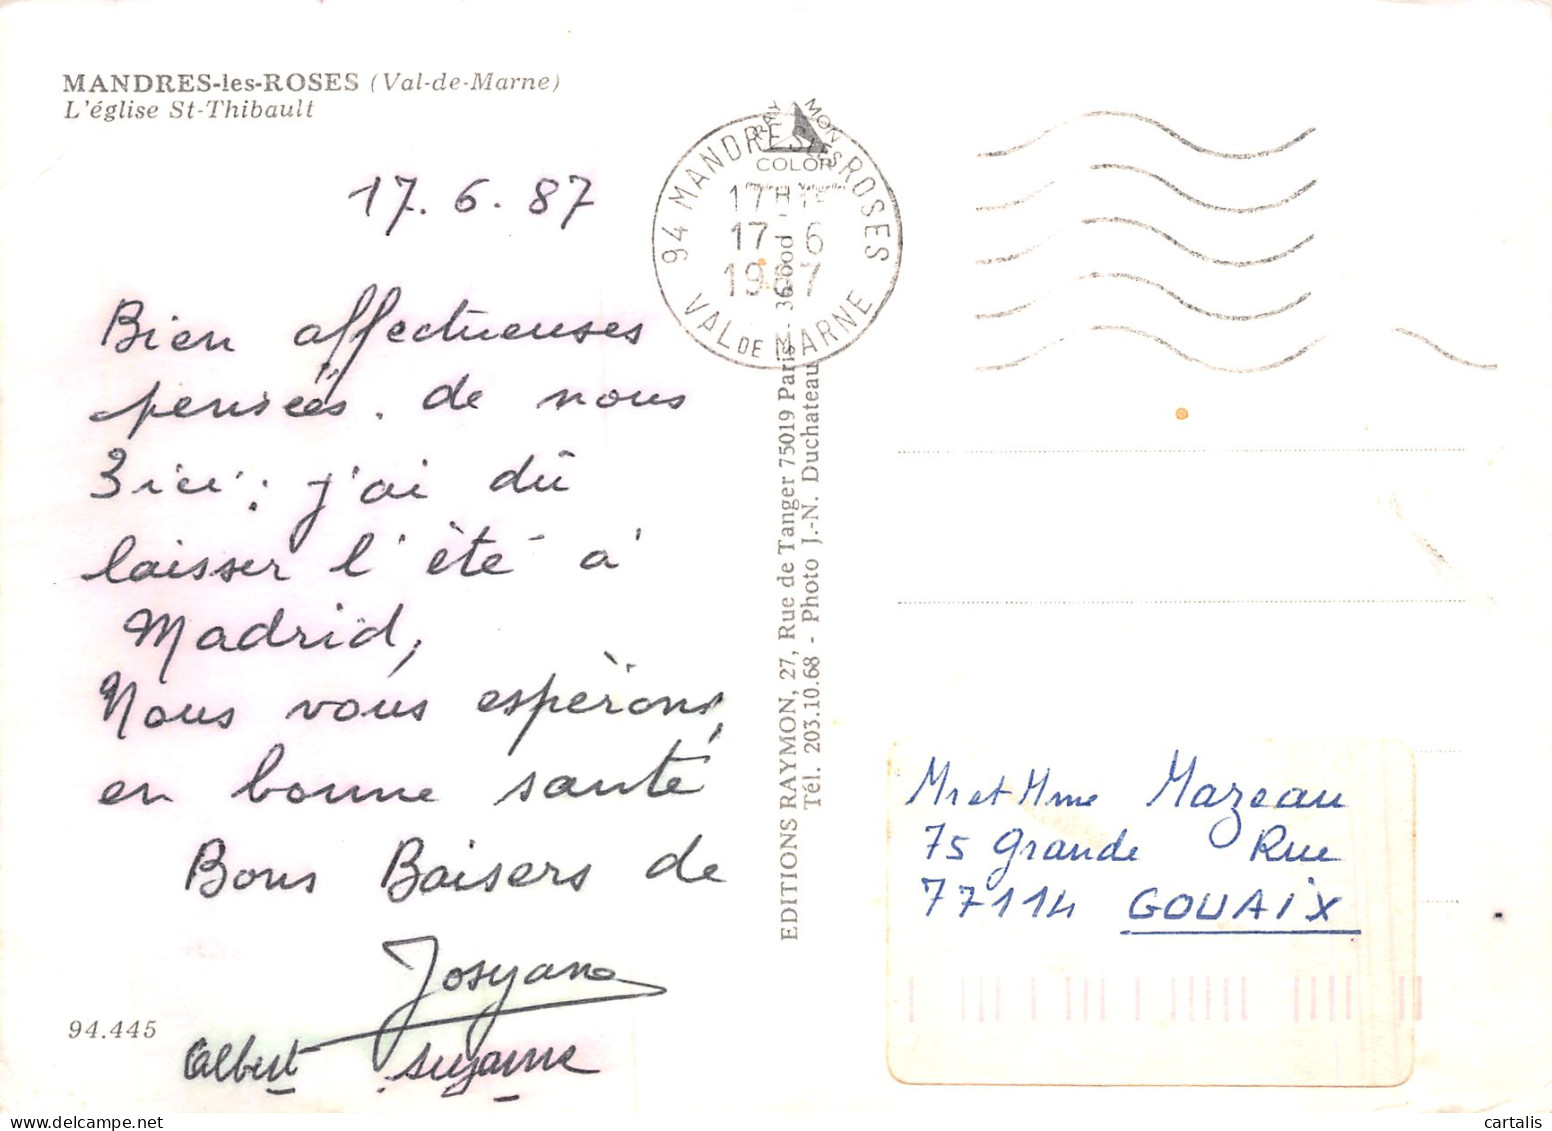 MANDRES-les-ROSES (Val-de-Marne)
L'église St-Thibault
17.6.87
Bien affectueuses
pensées. de nous
3 ici; j'ai dû
laisser l'été à
Madrid,
Nous vous espérons,
en bonne santé
Bons Baisers de
Josyane
Albert Suzanne
94.445
RAYMON
COLOR
94 MANDRES LES ROSES
17H
17-6
1987
VAL DE MARNE
EDITIONS RAYMON, 27, Rue de Tanger 75019 Paris -
Tél. 203.10.68 - Photo J.-N. Duchateau
Mr et Mme Mazeau
75 Grande Rue
77114 GOUAIX
cartalis